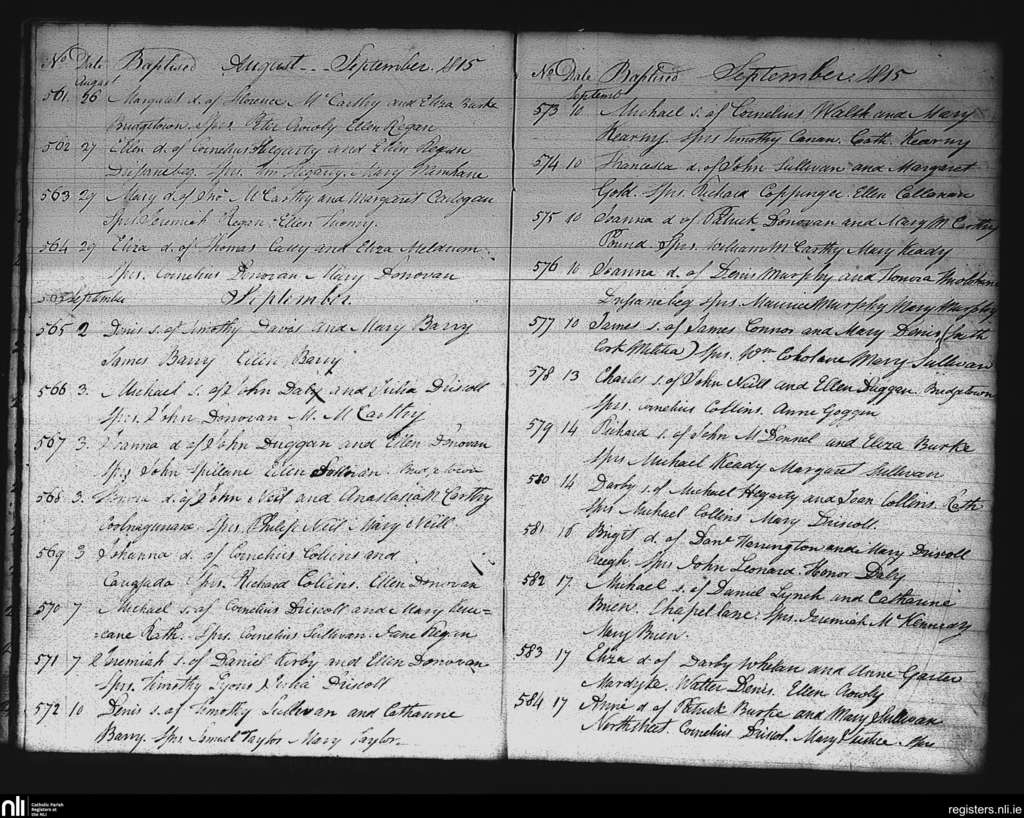 No Date Baptised August -- September. 1815
August
561 26 Margaret d. of Florence McCarthy and Eliza Burke
Bridgetown. Sprs. Peter Crowly Ellen Regan
562 27 Ellen d. of Cornelius Hegarty and Ellen Regan
Sprs. Wm Hegarty. Mary
563 29 Mary d. of Jno. McCarthy and Margaret
Sprs. Jeremiah Regan. Ellen
564 29 Eliza d. of Thomas and Eliza Meldrum.
Sprs. Cornelius Donovan. Mary Donovan
September September.
565 2 Denis s. of Timothy Davis and Mary Barry
James Barry Ellen Barry
566 3. Michael s. of John Daly and Julia Driscoll
Sprs. John Donovan M. McCarthy
567 3. Joanna d. of John Duggan and Ellen Donovan
Sprs John Spillane Ellen Sullivan. Bridgetown
568 3. Honora d. of John Neil and Anastasia McCarthy
Sprs. Philip Neil Mary Neill
569 3 Johanna d. of Cornelius Collins and
Sprs. Richard Collins. Ellen Donovan
570 7 Michael s. of Cornelius Driscoll and Mary
Rath. Sprs. Cornelius Sullivan. Jane Regan
571 7 Jeremiah s. of Daniel Kirby and Ellen Donovan
Sprs. Timothy Lyons Julia Driscoll
572 10 Denis s. of Timothy Sullivan and Catharine
Barry. Sprs Samuel Taylor Mary Taylor
No Date Baptised September. 1815
September
573 10 Michael s. of Cornelius Walsh and Mary
Kearny. Sprs Timothy Canan. Cath. Kearny
574 10 Francesca d. of John Sullivan and Margaret
Gold. Sprs. Richard Coppinger. Ellen Callanan
575 10 Joanna d of Patrick Donovan and Mary McCarthy
Pound. Sprs. William McCarthy Mary Keady
576 10 Joanna d. of Denis Murphy and Honora
Sprs. Maurice Murphy Mary Murphy
577 10 James s. of James Connor and Mary Denis (South
Cork Militia) Sprs. Wm Coholane Mary Sullivan
578 13 Charles s. of John Neill and Ellen Duggan. Bridgetown
Sprs. Cornelius Collins. Anne Goggin
579 14 Richard s. of John McDonnel and Eliza Burke
Sprs Michael Keady Margaret Sullivan
580 14 Darby s. of Michael Hegarty and Joan Collins. Rath
Sprs Michael Collins Mary Driscoll.
581 16 Brigit d. of Danl Harrington and Mary Driscoll
Sprs John Leonard Honor Daly
582 17. Michael s. of Daniel Lynch and Catharine
Brien. Chapel lane. Sprs. Jeremiah McKennedy
Mary Brien.
583 17 Eliza d of Darby Whelan and Anne
Mardyke. Walter Denis. Ellen Crowly
584 17 Anne d of Patrick Burke and Mary Sullivan
Northstreet. Cornelius Driscol. Mary Justice. Sprs
nli Catholic Parish
Registers at
the NLI
registers.nli.ie